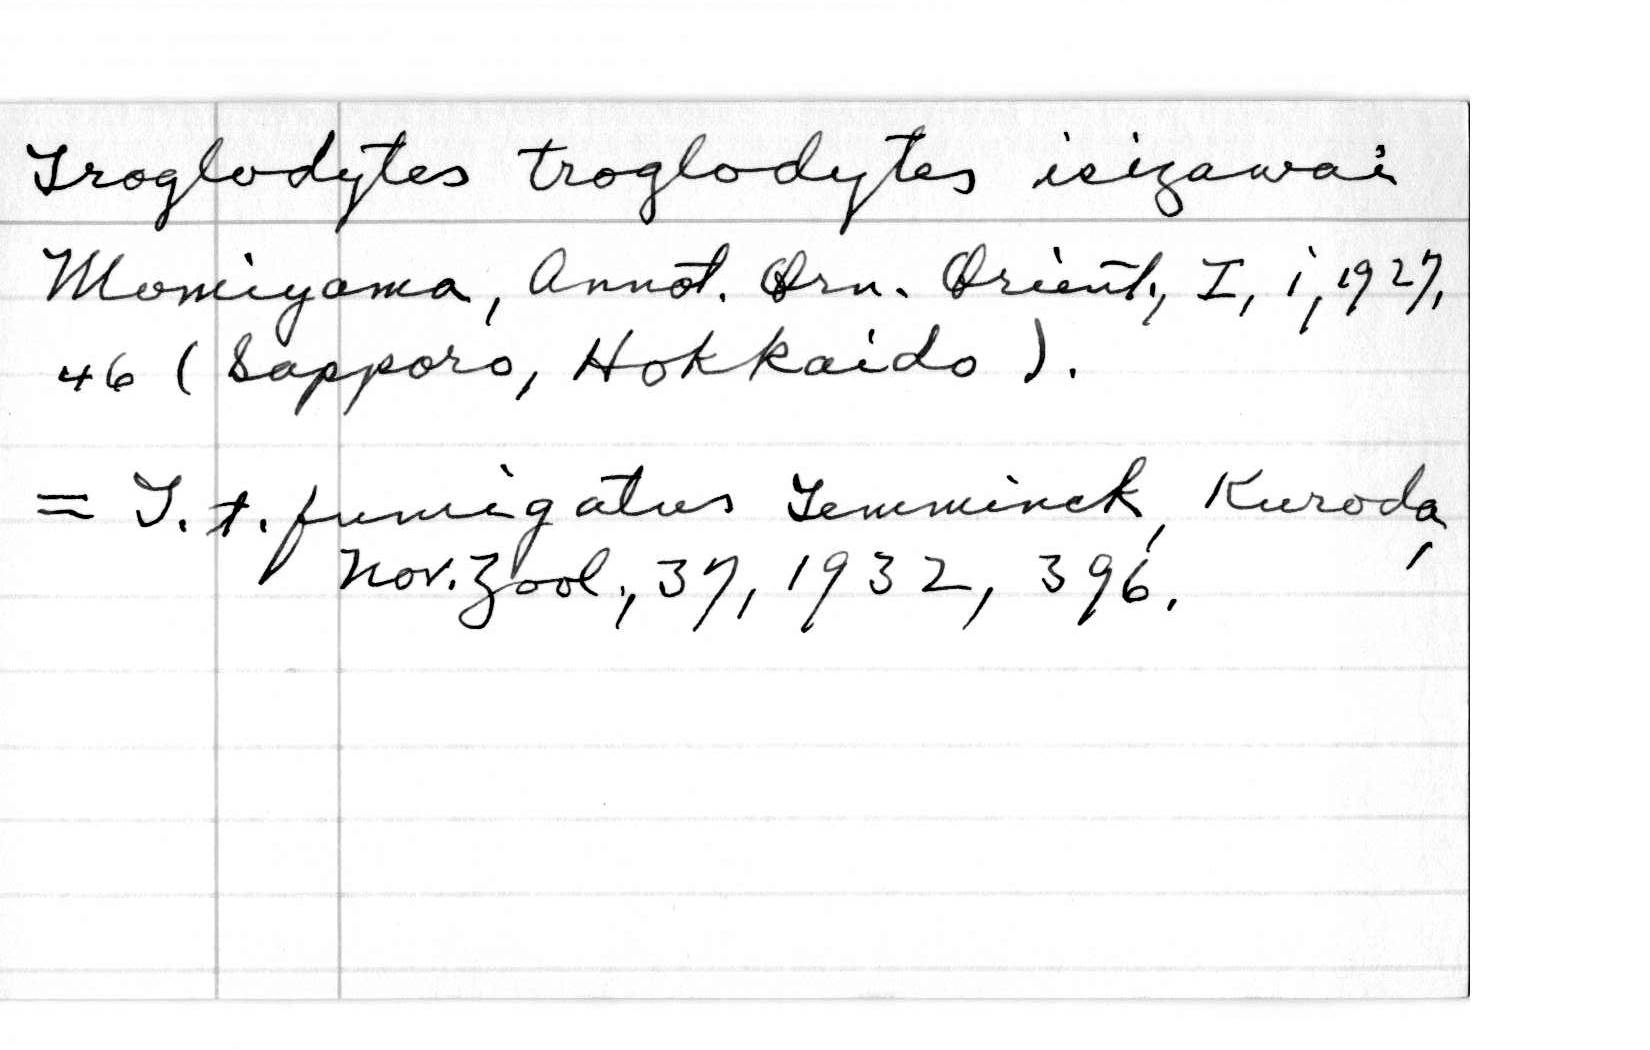 Troglodytes troglodytes isizawai
Momiyama, Annot. Orn. Orient., I, i, 1927,
46 (Sapporo, Hokkaido).
= T. t. fumigatus Temminck, Kuroda,
Nov. Zool., 37, 1932, 396.